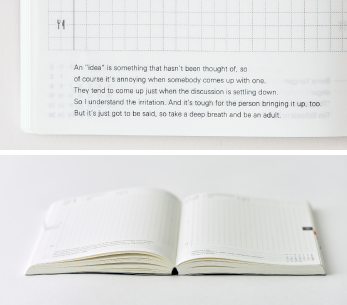 An "idea" is something that hasn't been thought of, so
of course it's annoying when somebody comes up with one.
They tend to come up just when the discussion is settling down.
So I understand the irritation. And it's tough for the person bringing it up, too.
But it's just got to be said, so take a deep breath and be an adult.